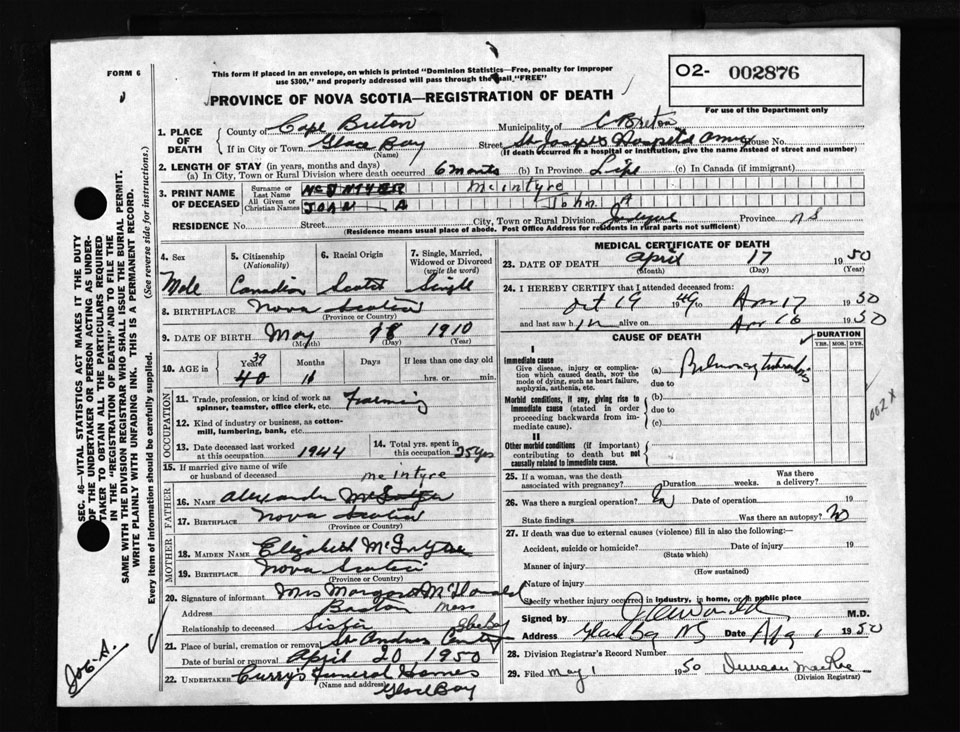 FORM 6
This form if placed in an envelope, on which is printed "Dominion Statistics—Free, penalty for improper
use $300," and properly addressed will pass through the mail, "FREE"
O2- 002876
For use of the Department only
PROVINCE OF NOVA SCOTIA—REGISTRATION OF DEATH
1. PLACE OF DEATH
County of Cape Breton Municipality of C Breton
If in City or Town Glace Bay (Name) Street St Josephs Hospital House No.
(If death occurred in a hospital or institution, give the name instead of street and number)
2. LENGTH OF STAY (in years, months and days)
(a) In City, Town or Rural Division where death occurred 6 months (b) In Province Life (c) In Canada (if immigrant)
3. PRINT NAME OF DECEASED
Surname or Last Name McINTYER McIntyre
All Given or Christian Names JOHN A John A
RESIDENCE No. Street City, Town or Rural Division Province NS
(Residence means usual place of abode. Post Office Address for residents in rural parts not sufficient)
4. Sex
Male
5. Citizenship
(Nationality)
Canadian
6. Racial Origin
Scotch
7. Single, Married,
Widowed or Divorced
(write the word)
Single
8. BIRTHPLACE Nova Scotia
(Province or Country)
9. DATE OF BIRTH May 18 1910
(Month) (Day) (Year)
10. AGE in Years Months Days If less than one day old
39 40 11 hrs. or min.
OCCUPATION
11. Trade, profession, or kind of work as
spinner, teamster, office clerk, etc. Farming
12. Kind of industry or business, as cotton-
mill, lumbering, bank, etc.
13. Date deceased last worked
at this occupation 1944
14. Total yrs. spent in
this occupation 25 yrs
15. If married give name of wife
or husband of deceased
McIntyre
FATHER
16. NAME Alexander McIntyre
17. BIRTHPLACE Nova Scotia
(Province or Country)
MOTHER
18. MAIDEN NAME Elizabeth McIntyre
19. BIRTHPLACE Nova Scotia
(Province or Country)
20. Signature of informant Mrs Margaret McDonald
Address Boston Mass
Relationship to deceased Sister
Glace Bay
21. Place of burial, cremation or removal
Date of burial or removal April 20 1950
22. UNDERTAKER Curry's Funeral Homes
(Name and address)
Glace Bay
MEDICAL CERTIFICATE OF DEATH
23. DATE OF DEATH April 17 1950
(Month) (Day) (Year)
24. I HEREBY CERTIFY that I attended deceased from:
Oct 19 1949 to Apr 17 1950
and last saw him alive on Apr 16 1950
CAUSE OF DEATH
DURATION
YRS. MOS. DYS.
I
Immediate cause
Give disease, injury or complica-
tion which caused death, NOT the
mode of dying, such as heart failure,
asphyxia, asthenia, etc.
(a) Pulmonary tuberculosis
due to
Morbid conditions, if any, giving rise to
immediate cause (stated in order
proceeding backwards from im-
mediate cause).
(b)
due to
(c)
002 X
II
Other morbid conditions (if important)
contributing to death but not
causally related to immediate cause.
25. If a woman, was the death
associated with pregnancy? Duration weeks. Was there
a delivery?
26. Was there a surgical operation? No Date of operation 19
State findings Was there an autopsy? No
27. If death was due to external causes (violence) fill in also the following:—
Accident, suicide or homicide? Date of injury 19
(State which)
Manner of injury
(How sustained)
Nature of injury
Specify whether injury occurred in industry, in home, or in public place
Signed by M.D.
Address Glace Bay NS Date 1950
28. Division Registrar's Record Number
29. Filed May 1 1950 Duncan MacRae
(Division Registrar)
SEC. 46—VITAL STATISTICS ACT MAKES IT THE DUTY
OF THE UNDERTAKER OR PERSON ACTING AS UNDER-
TAKER TO OBTAIN ALL THE PARTICULARS REQUIRED
IN THE "REGISTRATION OF DEATH" AND TO FILE THE
SAME WITH THE DIVISION REGISTRAR WHO SHALL ISSUE THE BURIAL PERMIT.
WRITE PLAINLY WITH UNFADING INK. THIS IS A PERMANENT RECORD.
Every item of information should be carefully supplied. (See reverse side for instructions.)